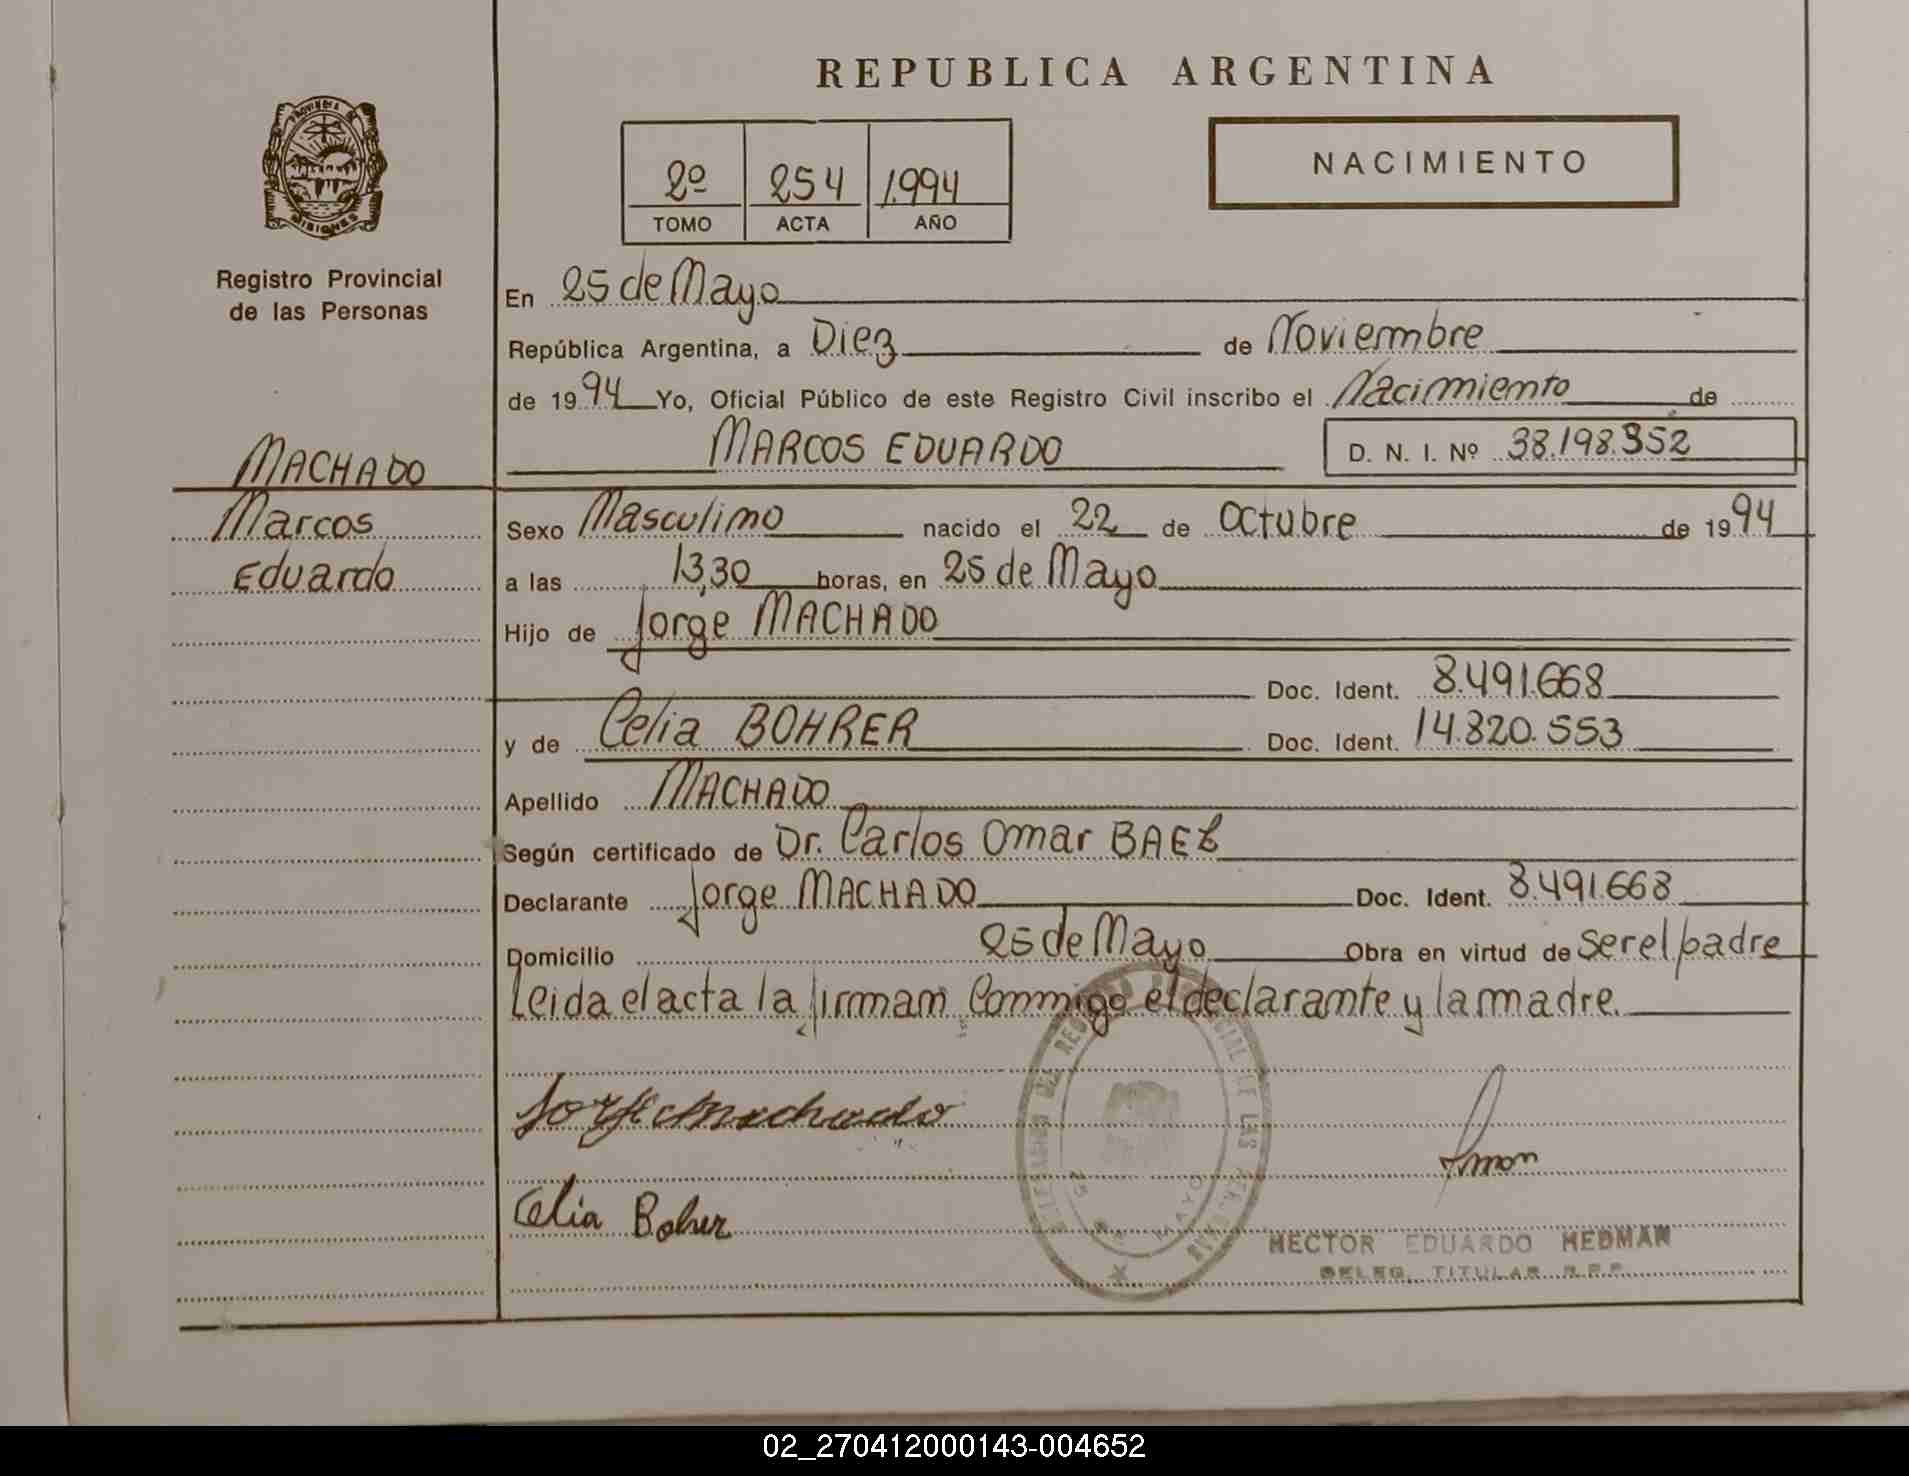 REPUBLICA ARGENTINA
PROVINCIA DE MISIONES
2º 254 1.994
TOMO ACTA AÑO
NACIMIENTO
Registro Provincial
de las Personas
En 25 de Mayo
República Argentina, a Diez de Noviembre
de 1994 Yo, Oficial Público de este Registro Civil inscribo el Nacimiento de
MARCOS EDUARDO D. N. I. Nº 38.198.352
MACHADO
Marcos
Eduardo
Sexo Masculino nacido el 22 de Octubre de 1994
a las 13,30 horas, en 25 de Mayo
Hijo de Jorge MACHADO
Doc. Ident. 8.491.668
y de Celia BOHRER Doc. Ident. 14.820.553
Apellido MACHADO
Según certificado de Dr. Carlos Omar BAEZ
Declarante Jorge MACHADO Doc. Ident. 8.491.668
Domicilio 25 de Mayo Obra en virtud de ser el padre
Leida el acta la firman Conmigo el declarante y la madre.
Jorge Machado
Celia Boher
REGISTRO PROVINCIAL DE LAS PERSONAS
25 DE MAYO
HECTOR EDUARDO HEDMAN
DELEG. TITULAR R.P.P.
02_270412000143-004652